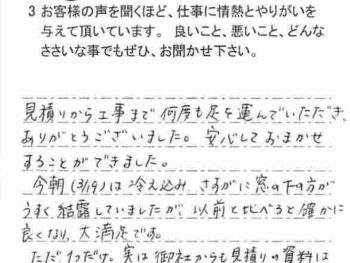 3 お客様の声を聞くほど、仕事に情熱とやりがいを
与えて頂いています。 良いこと、悪いこと、どんな
ささいな事でもぜひ、お聞かせ下さい。
見積りから工事まで何度も足を運んでいただき、
ありがとうございました。安心しておまかせ
することができました。
今朝(3/19)は冷え込み、さすがに窓の下の方が
うすく結露していましたが、以前と比べると確かに
良くなり、大満足です。
ただ1つだけ。実は御社からも見積りの資料は